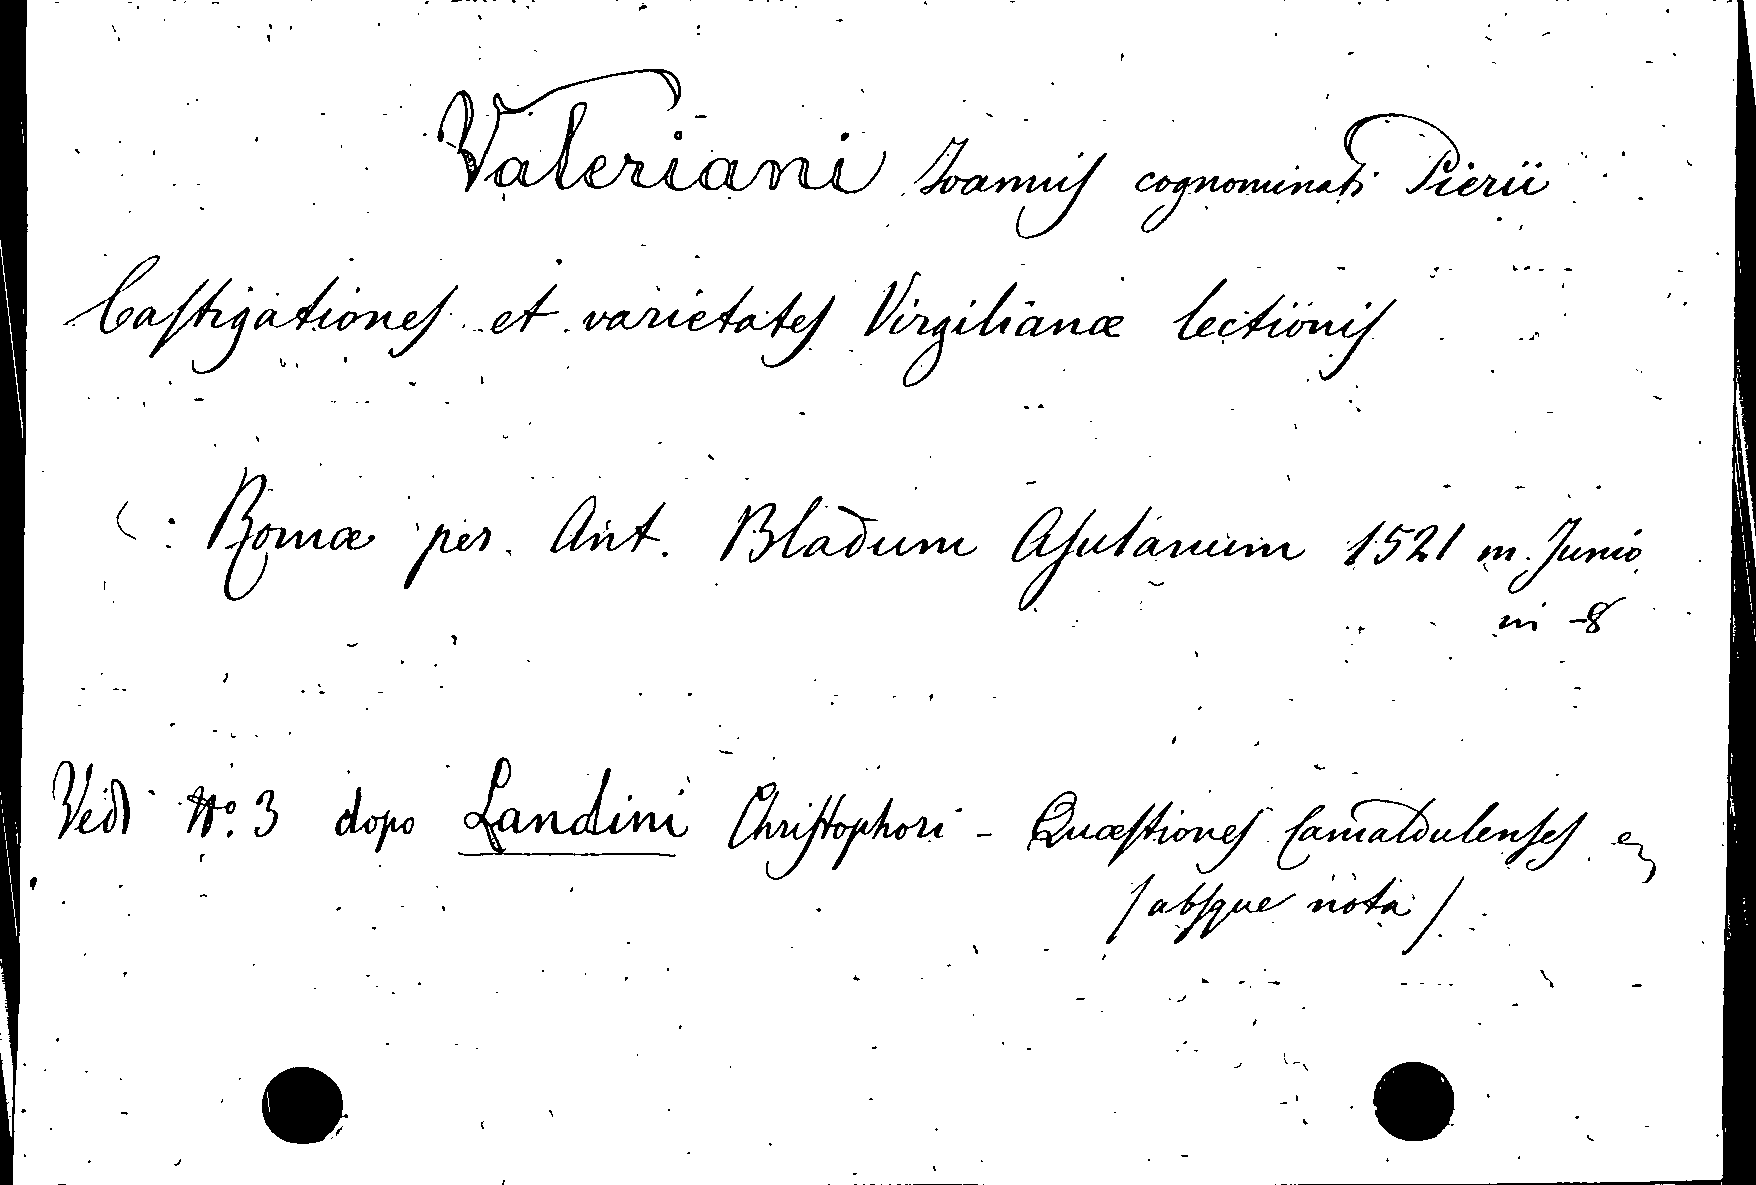 Valeriani Joannis cognominati Pierii
Castigationes et varietates Virgilianæ lectionis
: Romæ per Ant. Bladum Asulanum 1521 m. Junio
in -8
Vedi N.o 3 dopo Landini Christophori - Quæstiones Camaldulenses
/absque nota/